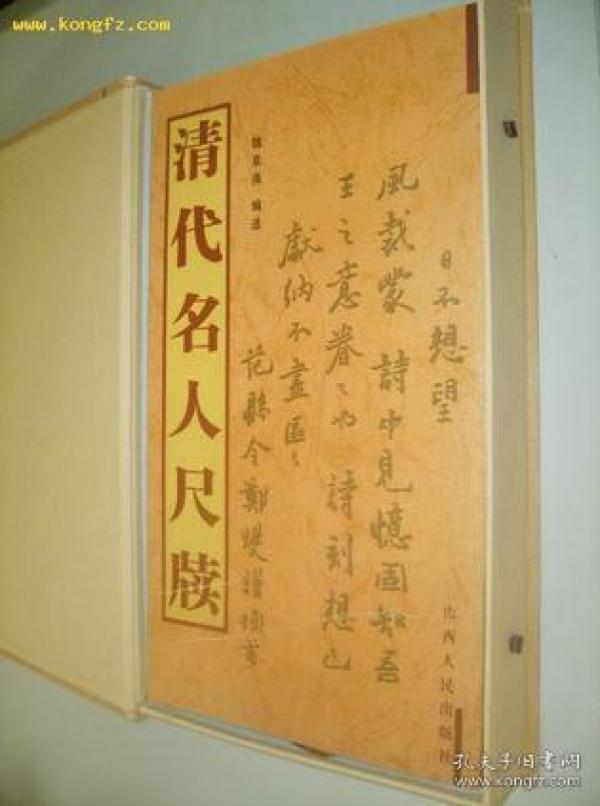 www.kongfz.com
清代名人尺牍
编选
日不想望
风裁蒙 詩中見憶固知吾
王之意眷〻也 詩刻想已
獻納不盡區〻
范縣令鄭燮
山西人民出版社
孔夫子旧书网
www.kongfz.com